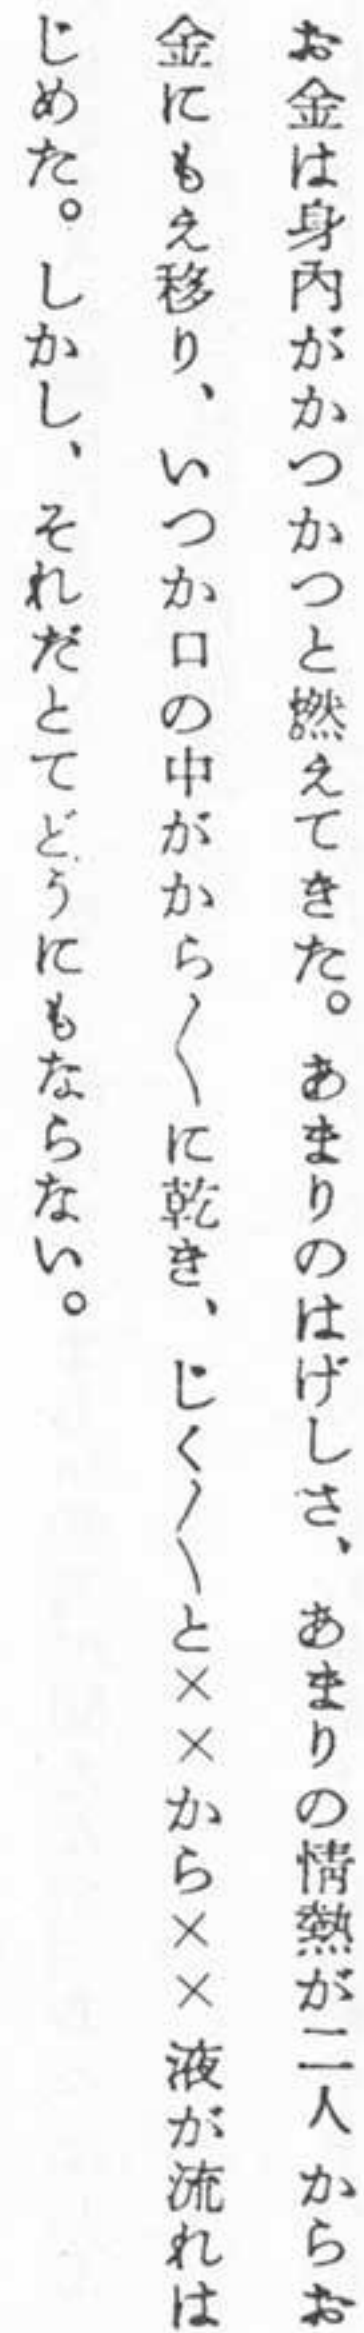 お金は身内がかつかつと燃えてきた。あまりのはげしさ、あまりの情熱が二人からお
金にもえ移り、いつか口の中がから〳〵に乾き、じく〳〵と××から××液が流れは
じめた。しかし、それだとてどうにもならない。